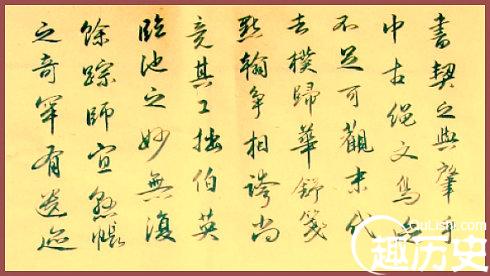 書契之興肇乎
中古绳文鳥
不足可觀末代
去樸歸華舒箋
點翰争相誇尚
竞其工拙伯英
臨池之妙無復
餘踪師宜懸帳
之奇罕有遺迹
QuLiShi.com
趣历史